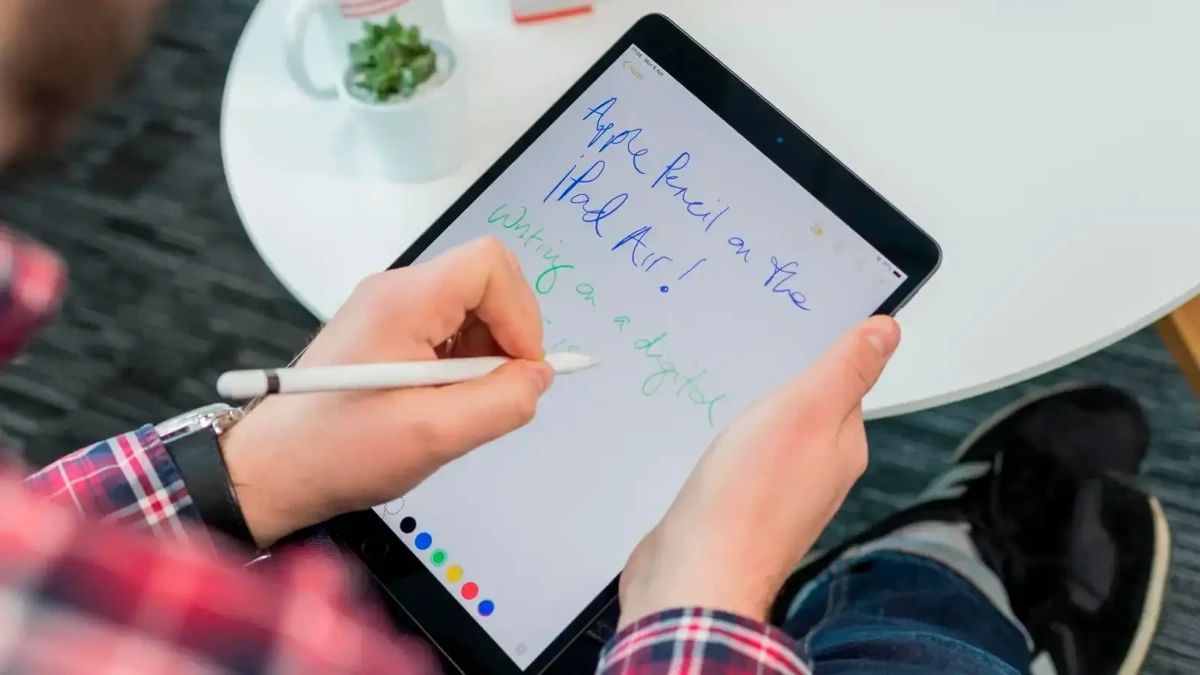 Apple Pencil on the
iPad Air!
Writing on a digital